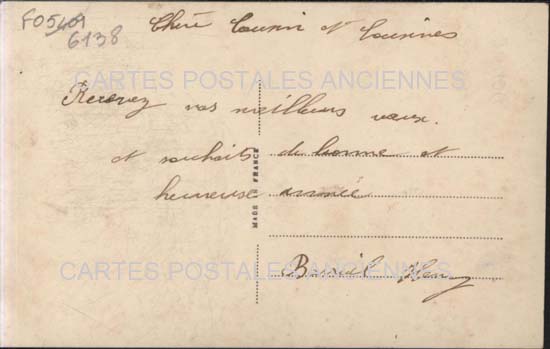 F05401
6138
Chère Cousin et Cousines
CARTES POSTALES ANCIENNES
Recevez vos meilleurs vœux.
et souhaits de bonne et
heureuse année
MADE IN FRANCE
CARTES POSTALES ANCIENNES
Henry